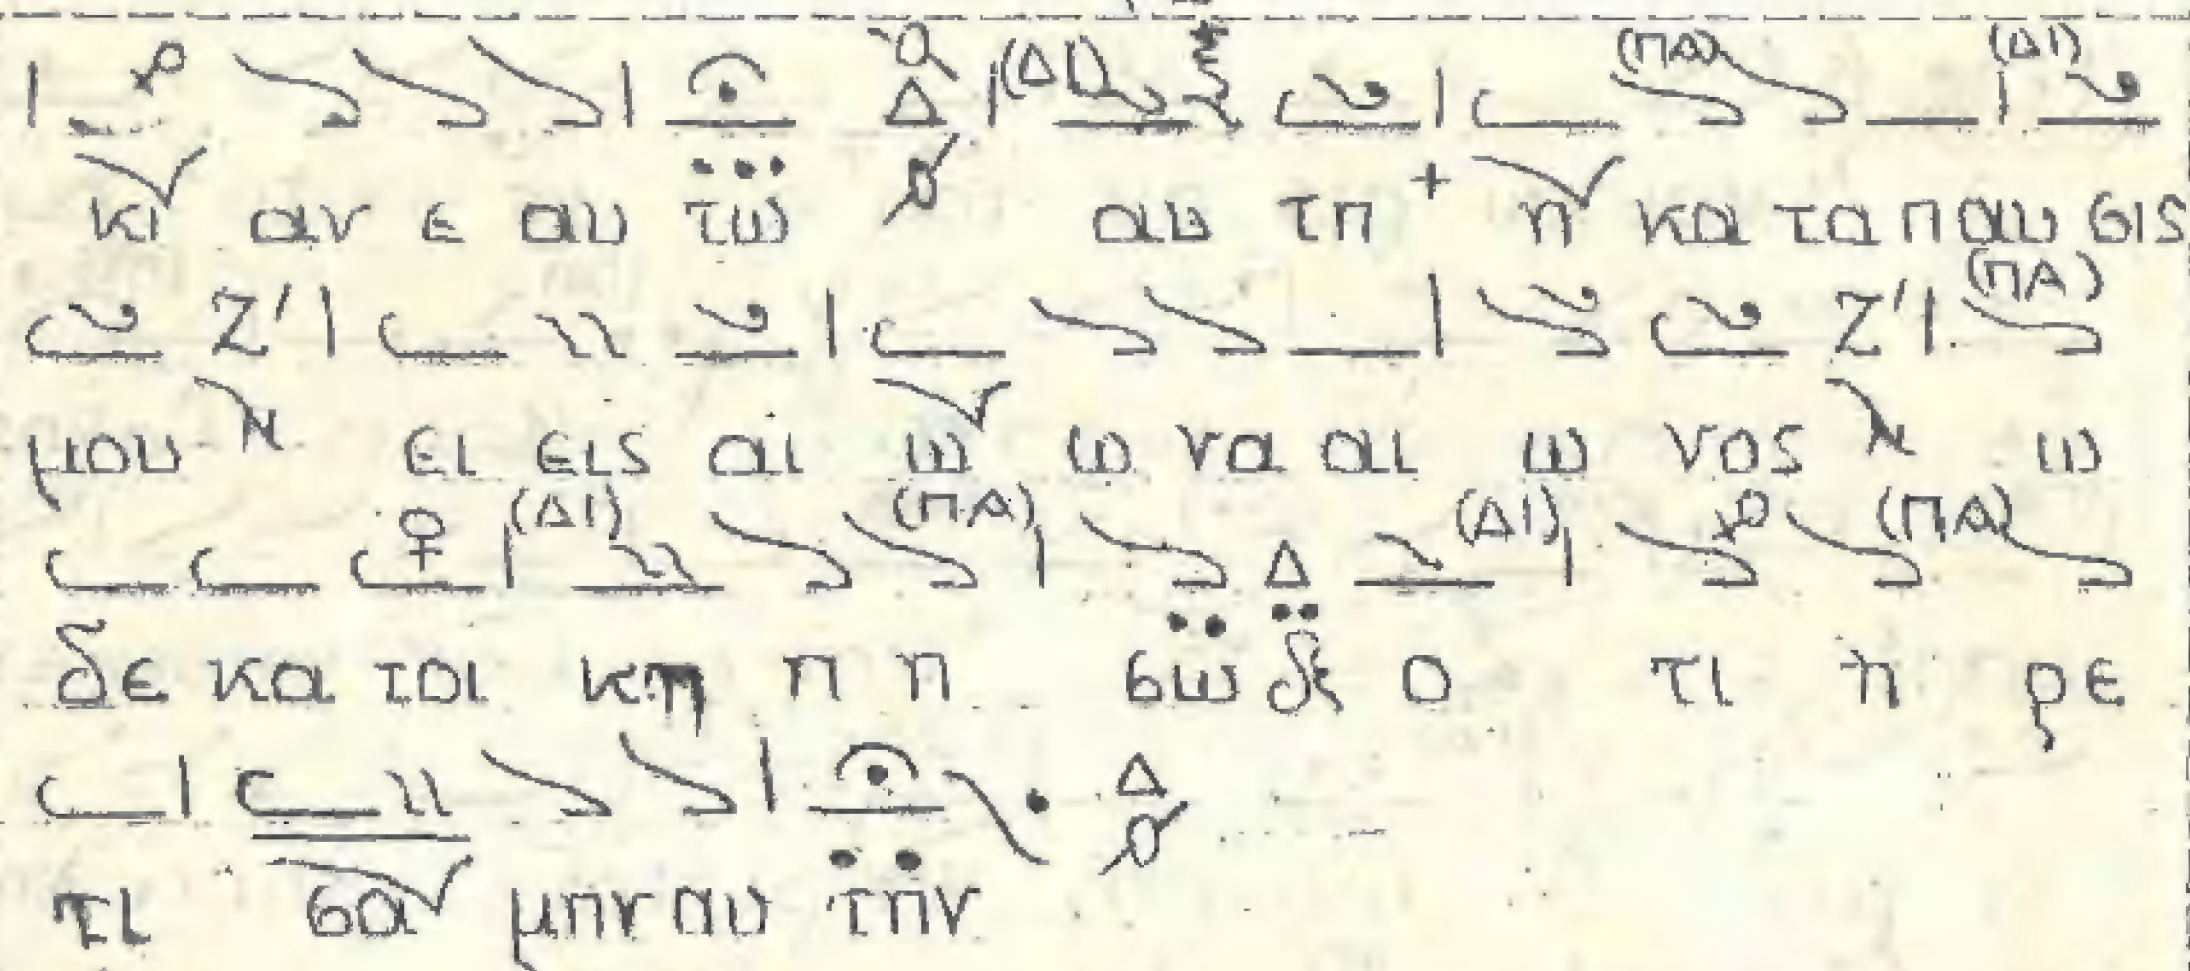 (ΔΙ) (ΠΑ) (ΔΙ)
κι αν ε αυ τω αυ τη η κα τα παυ σις
Ζ' Ζ' (ΠΑ)
μου ει εις αι ω ω να αι ω νος ω
(ΔΙ) (ΠΑ) Δ (ΔΙ) (ΠΑ)
δε κα τοι κη η η σω δι ο τι η ρε
Δ
τι σα μην αυ την